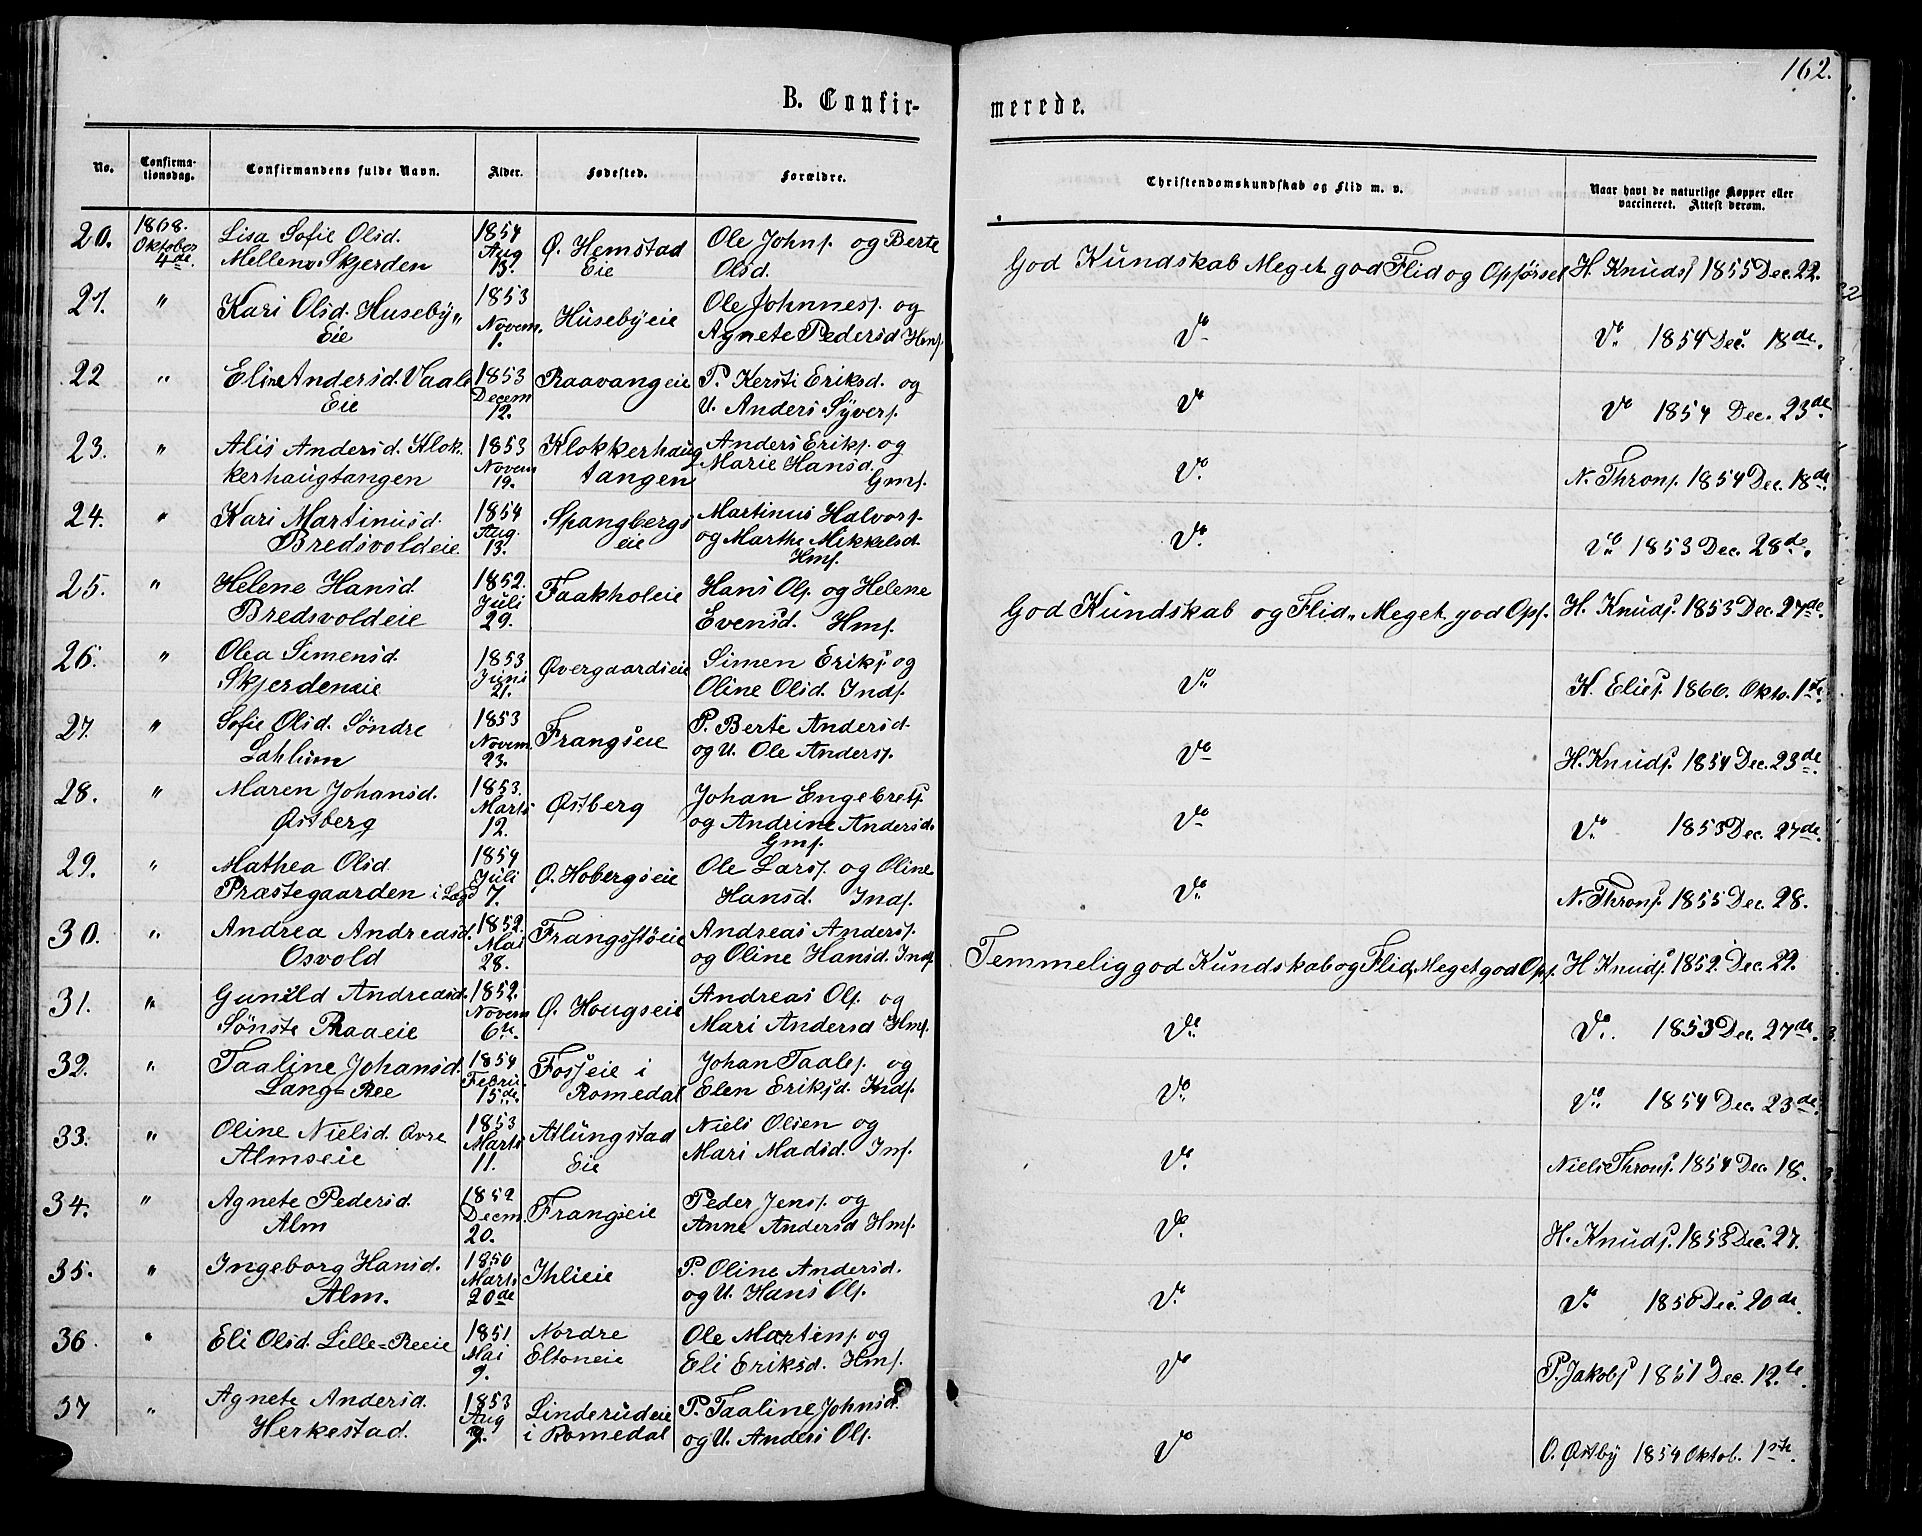 162.
B. Confirmerede.
No. Confirmationsdag. Confirmandens fulde Navn. Alder. Fødested. Forældre. Christendomskundskab og Flid m. v. Naar havt de naturlige Kopper eller vaccineret. Attest derom.
20. 1868. Oktober 4de. Lisa Sofie Olsd. Mellem Skjerden 1854 Aug 13. Ø. Hemstad Eie Ole Johns. og Berte Olsd. God Kundskab Meget god Flid og Opførsel H. Knuds. 1855 Dec. 22.
21. " Kari Olsd. Huseby" Eie 1853 Novem. 1. Husebyeie Ole Johnnes. og Agnete Pedersd. Hmf. Do 1854 Dec. 18de.
22 " Eline Andersd. Vaals Eie 1853 Decem 12. Raavangeie P. Kersti Eriksd. og U. Anders Syvers. Do Do 1854 Dec. 23de
23. " Alis Andersd. Klokkerhaugtangen 1853 Novem 19. Klokkerhaugtangen Anders Eriks. og Marie Hansd. Gmf. Do N. Throns. 1854 Dec. 18de.
24. " Kari Martinusd. Bredsvoldeie 1854 Aug. 13. Spangbergs eie Martinus Halvors. og Marthe Mikkelsd. Hmf. Do Do 1853 Dec. 28de.
25. " Helene Hansd. Bredsvoldeie 1852. Juli 29. Faakholeie Hans Ols. og Helene Evensd. Hmf. God Kundskab og Flid" Meget god Opf. H. Knuds. 1853 Dec. 27de.
26. " Olea Simensd. Skjerdeneie 1853 Juni 21. Øvergaardseie Simen Eriks. og Oline Olsd. Indf. Do K. Elies. 1866. Okto. 1ste.
27. " Sofie Olsd. Søndre Lahlum 1853 Novem. 23. Frangseie P. Berte Andersd. og U. Ole Anders. Do H. Knuds. 1854 Dec. 23de.
28. " Maren Johansd. Østberg 1853. Marts 12. Østberg Johan Engebrets. og Andrine Andersd. Gmf. Do Do 1853 Dec. 27de.
29. " Mathea Olsd. Præstegaarden i Lægd 1854 Juli 7. Ø. Hobergseie Ole Lars. og Oline Hansd. Indf. Do N. Throns. 1855 Dec. 28.
30. " Andrea Andreasd. Osvold 1852. Mai 28. Frangsstøeie Andreas Anders. og Oline Hansd. Indf. Temmelig god Kundskab og Flid, Meget god Opf. H Knuds. 1852. Dec. 22.
31. " Gunild Andreasd. Sønste Raaeie 1852. Novem 6te. Ø. Hougseie Andreas Ols. og Mari Andersd Hmf. Do Do. 1853 Dec. 27de.
32. " Taaline Johansd. Lang=Ree 1854 Febru. 15de. Fosseie i Romedal Johan Taales. og Elen Eriksd. Indf. Do Do 1854 Dec. 23de.
33. " Oline Nielsd. Øvre Almseie 1853 Marts 11. Atlungstad Eie Niels Olsen og Mari Madsd. Inf. Do Niels Throns. 1854 Dec. 18.
34. " Agnete Pedersd. Alm 1852 Decm. 20. Frangseie Peder Jens. og Anne Andersd Hmf. Do H. Knuds. 1853 Dec. 27.
35. " Ingeborg Hansd. Alm. 1850 Marts 20de Ihlieie P. Oline Andersd. og U. Hans Ols. Do Do 1850 Dec. 20de.
36. " Eli Olsd. Lille=Reeie 1851 Mai 9. Nordre Eltoneie Ole Martins. og Eli Eriksd. Hmf. Do P. Jakobs 1851 Dec. 12te.
37 " Agnete Andersd. Herkestad. 1853 Aug 9. Linderudeie i Romedal P. Taaline Johnsd. og U. Anders Ols. Do O. Østby 1854 Oktob. 1ste.